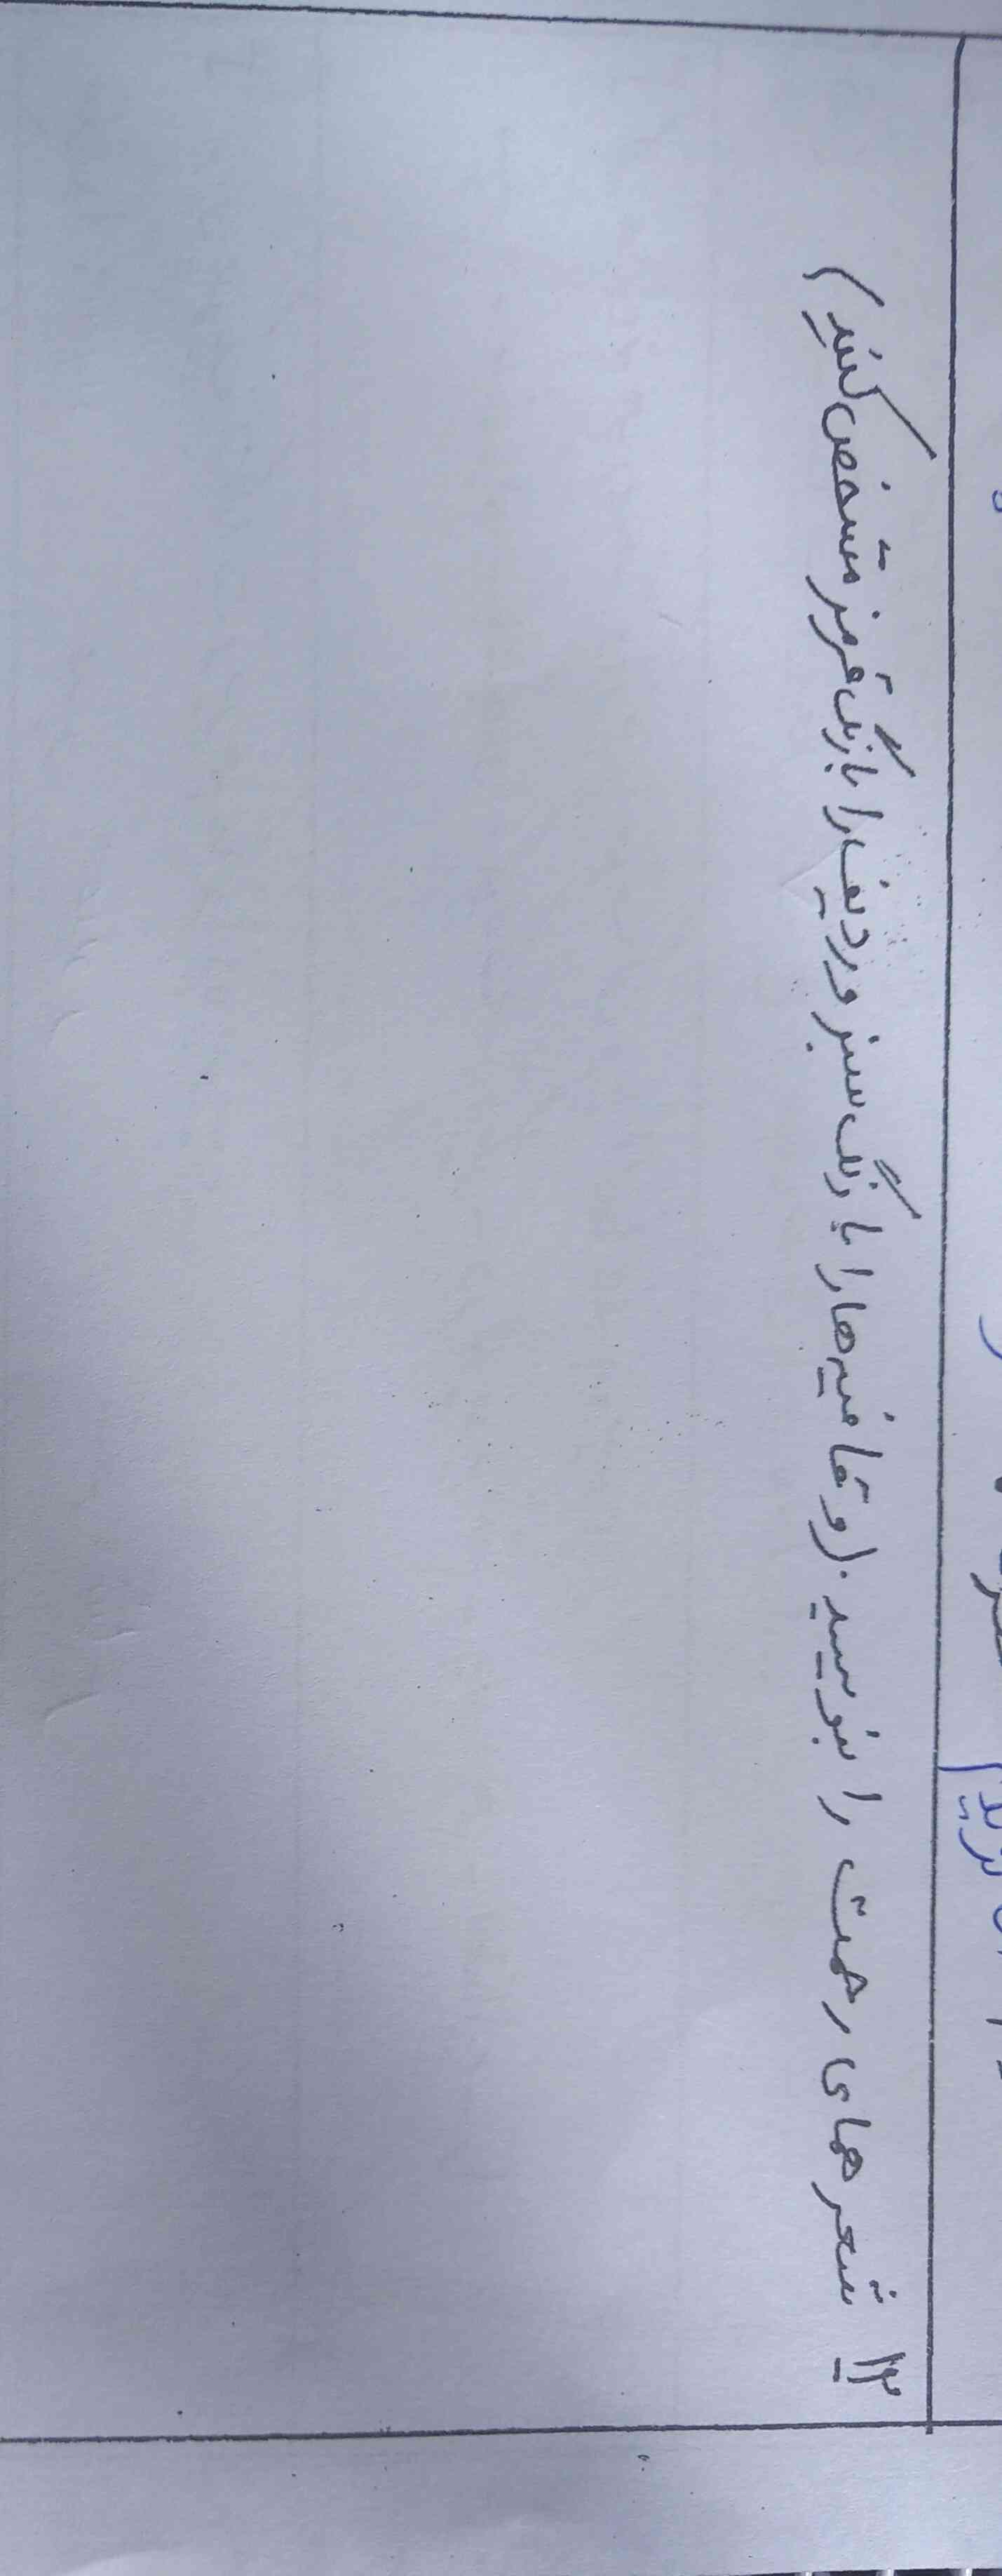 ۱۲_ شعرهای رحمت را بنویسید. (و قافیه ها را با رنگ سبز و ردیف را با رنگ قرمز مشخص کنید)